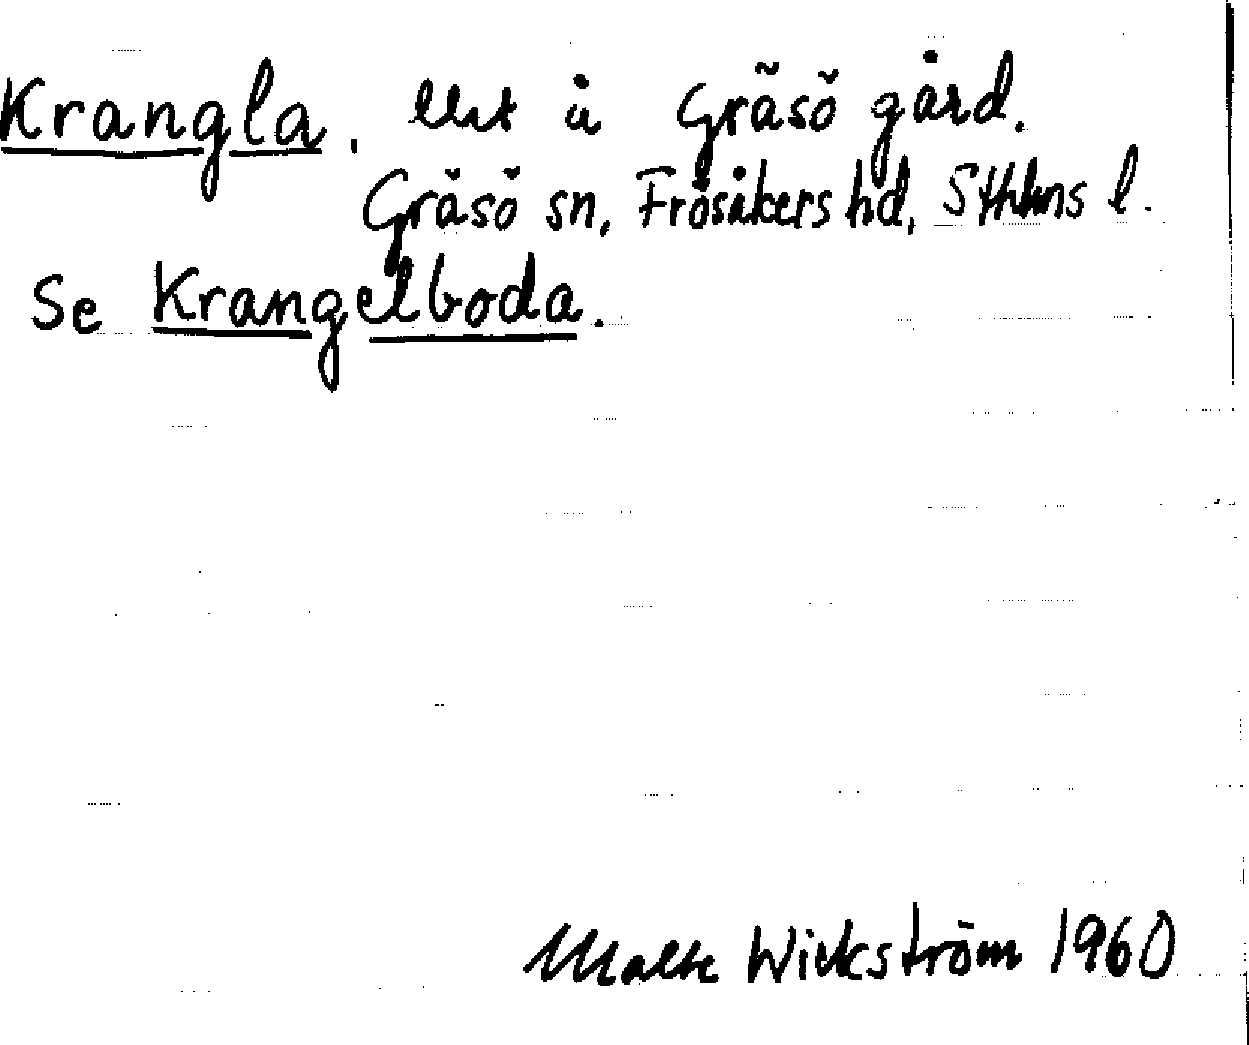 Krangla, å Gräsö gård.
Gräsö sn, Frösåkers hd, Sthlms l.
Se Krangelboda.
Malte Wickström 1960